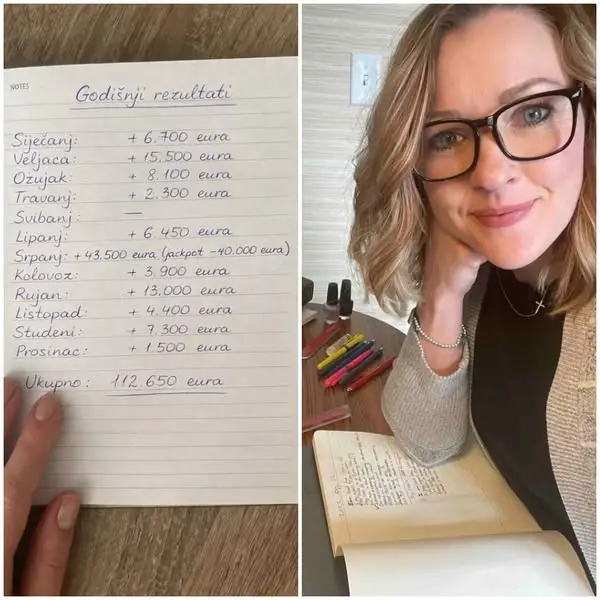 NOTES
Godišnji rezultati
Siječanj: + 6.700 eura
Veljaca: + 15.500 eura
Ožujak: + 8.100 eura
Travanj: + 2.300 eura
Svibanj: —
Lipanj: + 6.450 eura
Srpanj: + 43.500 eura (jackpot -40.000 eura)
Kolovoz: + 3.900 eura
Rujan: + 13.000 eura
Listopad: + 4.400 eura
Studeni: + 7.300 eura
Prosinac: + 1.500 eura
Ukupno: 112.650 eura